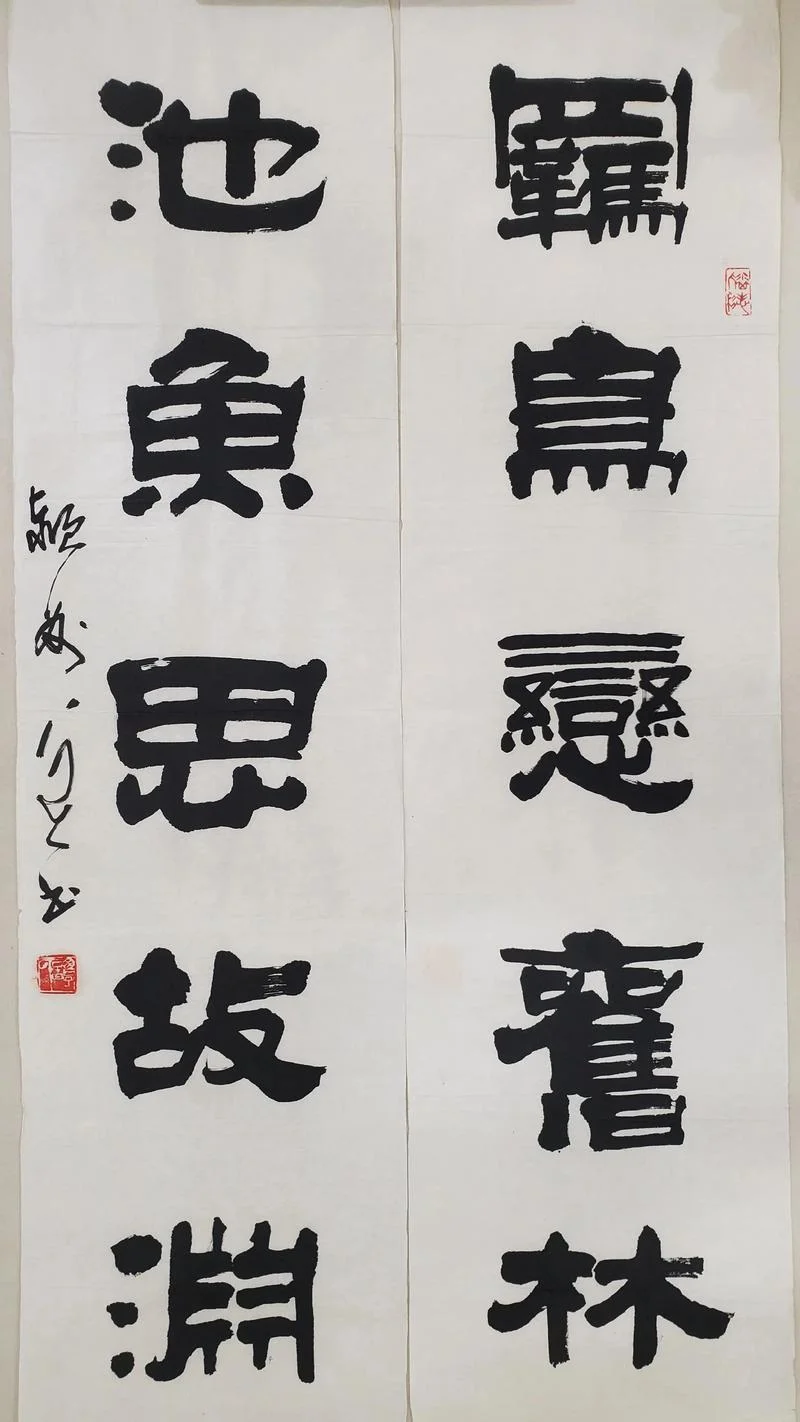 羈鳥戀舊林
池魚思故淵